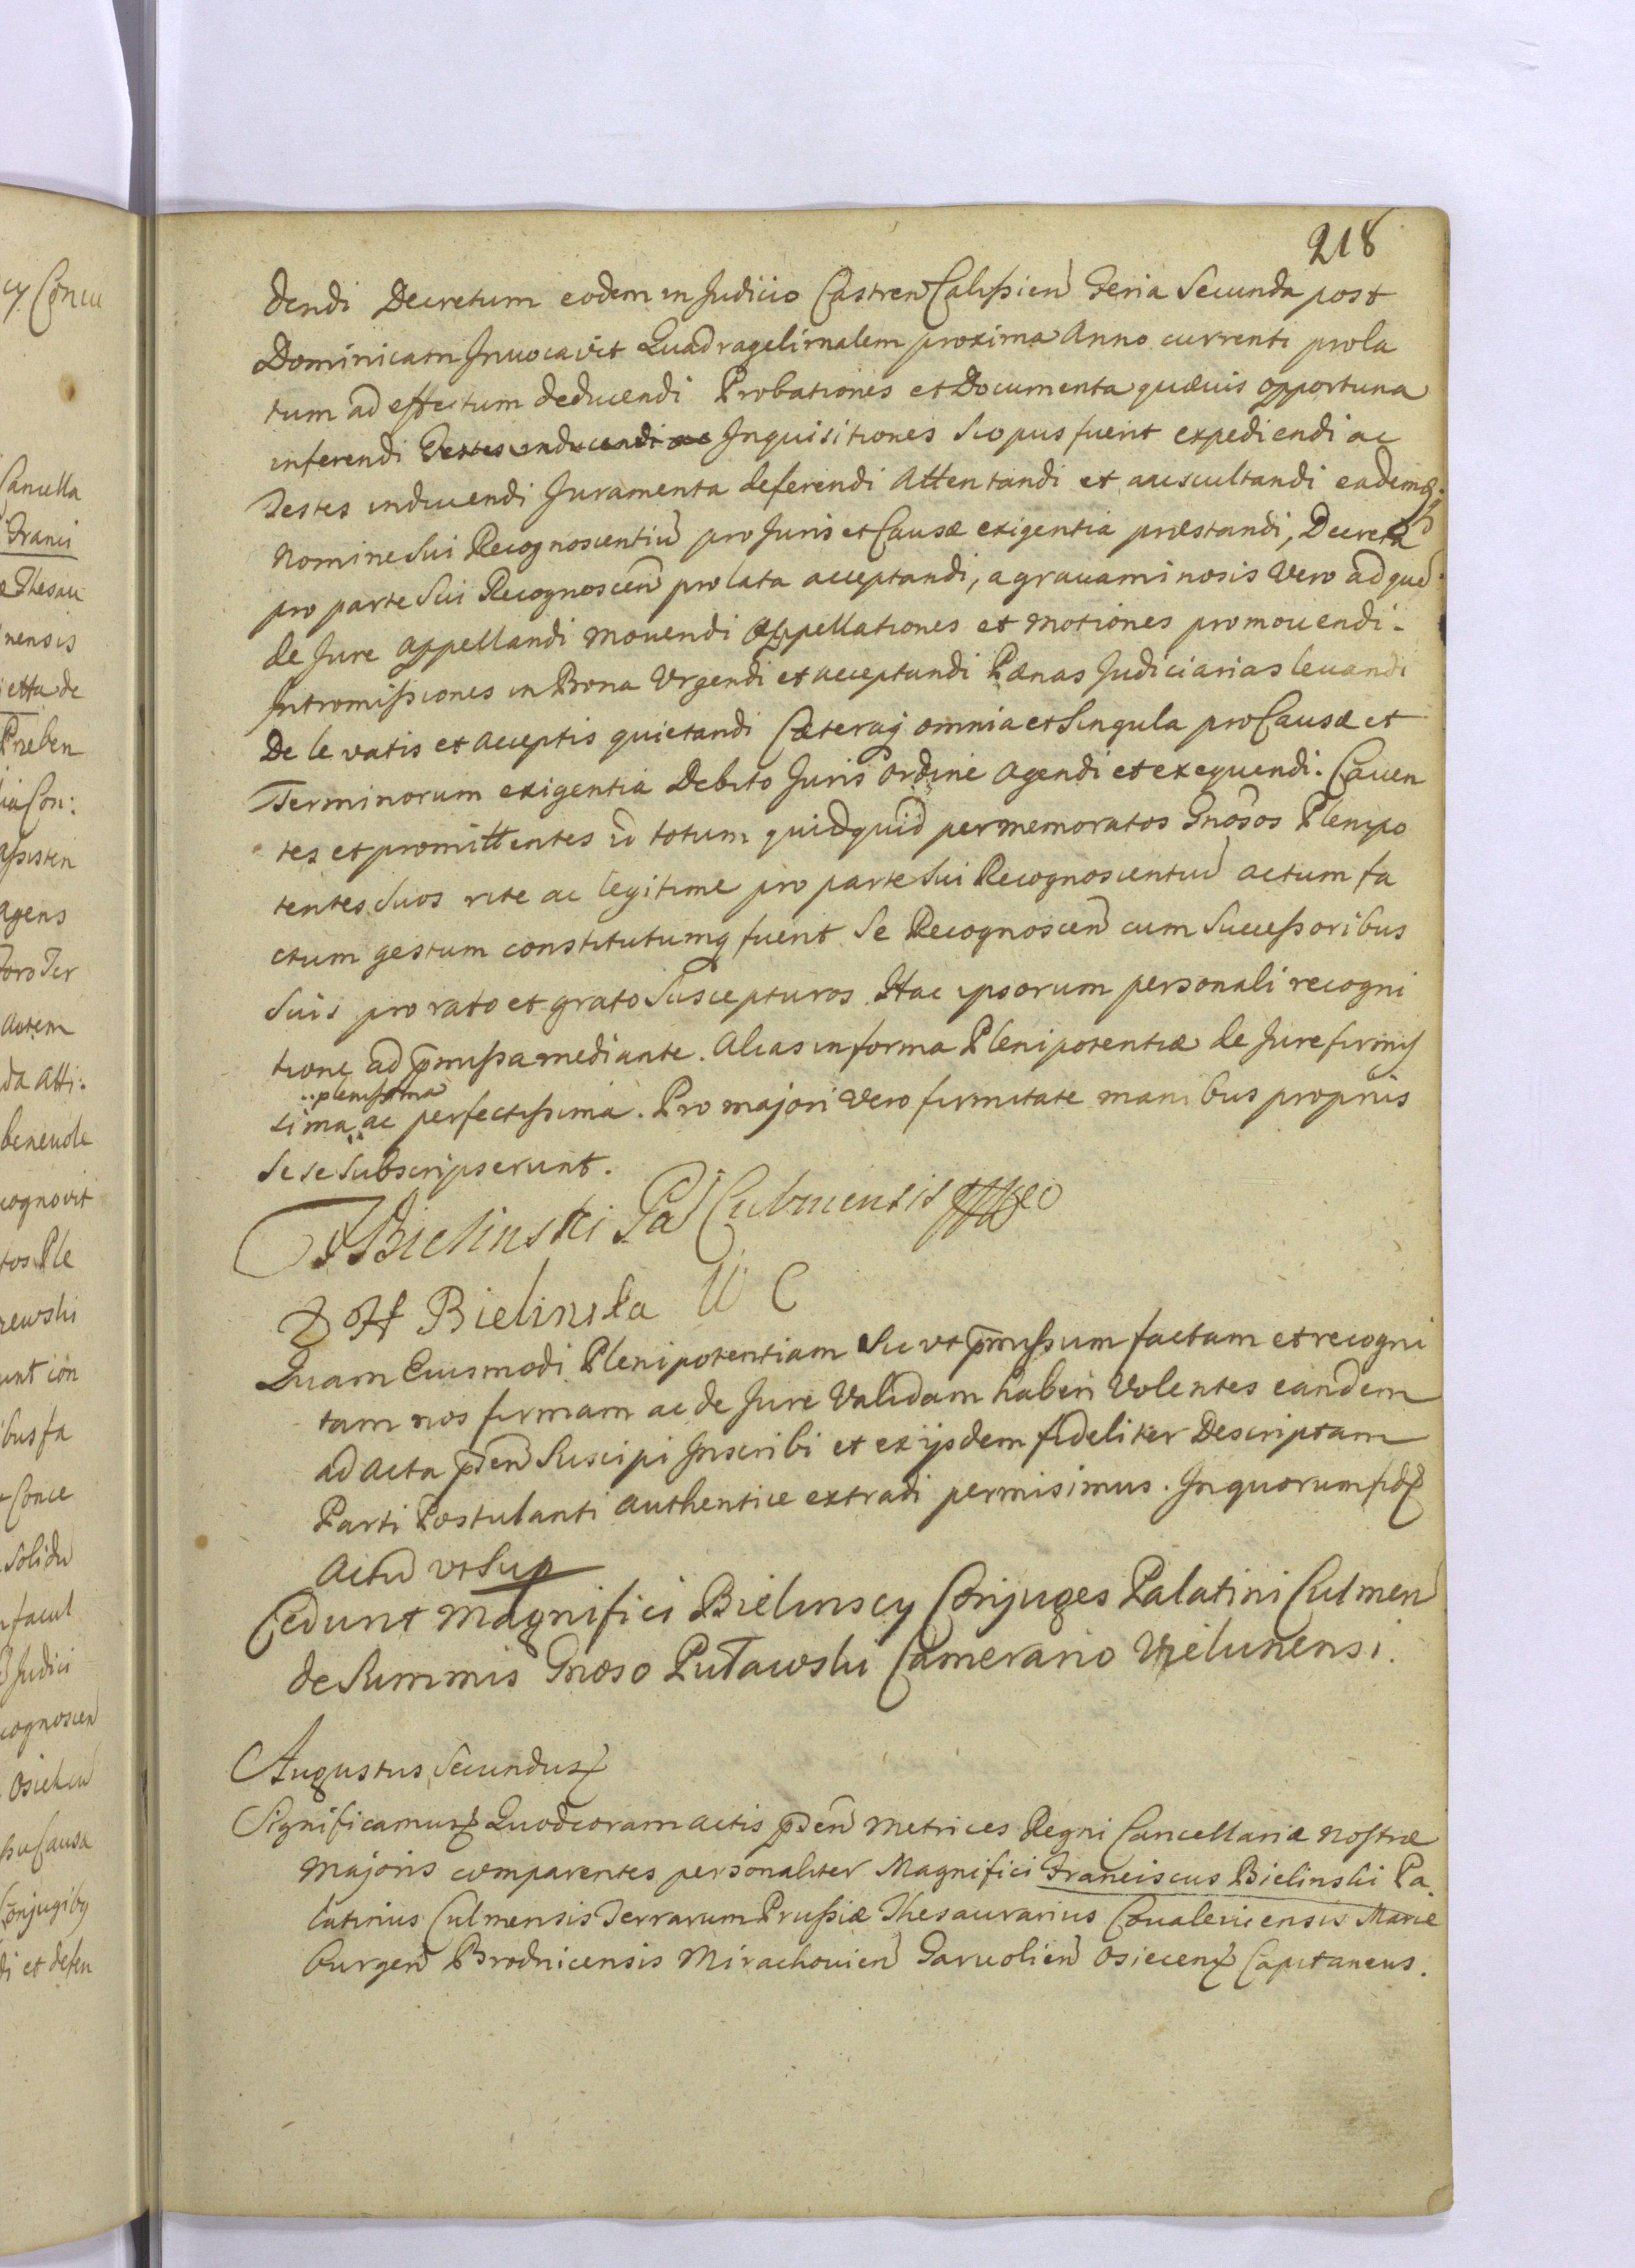 218
cy Coniu
dendi Decretum eodem in Judicio Castren Calissien Feria Secunda post
Dominicam Invocavit Quadragesimalem proxima Anno currenti prola
tum ad effectum deducendi Probationes et Documenta quævis opportuna
inferendi Testes inducendi ac Inquisitiones si opus fuerit expediendi ac
Testes inducendi Juramenta deferendi Attentandi et auscultandi eademq
nomine Sui Recognoscentiu pro Juris et Causæ exigentia præstandi, Decreta
pro parte Sui Recognoscen prolata acceptandi, a gravaminosis vero ad que
de Jure appellandi movendi Appellationes et motiones promovendi.
Intromissiones in Bona Vrgendi et acceptandi Pænas Judiciarias levandi
De levatis et acceptis quietandi Cæteraq omnia et Singula pro Causæ et
Terminorum exigentia Debito Juris ordine agendi et exequendi. Caven
tes et promittentes id totum quidquid per memoratos Gnosos Plenipo
tentes Suos rite ac legitime pro parte Sui Recognoscentiu actum fa
ctum gestum constitutumq fuerit Se Recognoscen cum Successoribus
Suis pro rato et grato Suscepturos Hac ipsorum personali recogni
tione ad præmissa mediante. Alias in forma Plenipotentiæ de Jure firmis
plenissima
sima ac perfectissima. Pro majori vero firmitate manibus propriis
Se se Subscripserunt.
F Bielinski Pa Culmensis
Bielinska W C
Quam Eiusmodi Plenipotentiam Sic vt pmissum factam et recogni
tam nos firmam ac de Jure Validam haberi Volentes eandem
ad Acta pден Suscipi Inscribi et ex ijsdem fideliter Descriptam
Parti Postulanti authentice extradi permisimus. In quorum fid
Actu vt Sup
Cedunt Magnifici Bielinscy Conjuges Palatini Culmen
de Summis Gnoso Puławski Camerario Vielunensi.
Augustus Secundus
Significamus Quod coram actis pden Metrices Regni Cancellariæ nostræ
Majoris comparentes personaliter Magnifici Franciscus Bielinski Pa
latinus Culmensis Terrarum Prussiæ Thesaurarius Covaleviensis Mariæ
Burgen Brodnicensis Mirachovien Garvolien Osiecen Capitaneus.